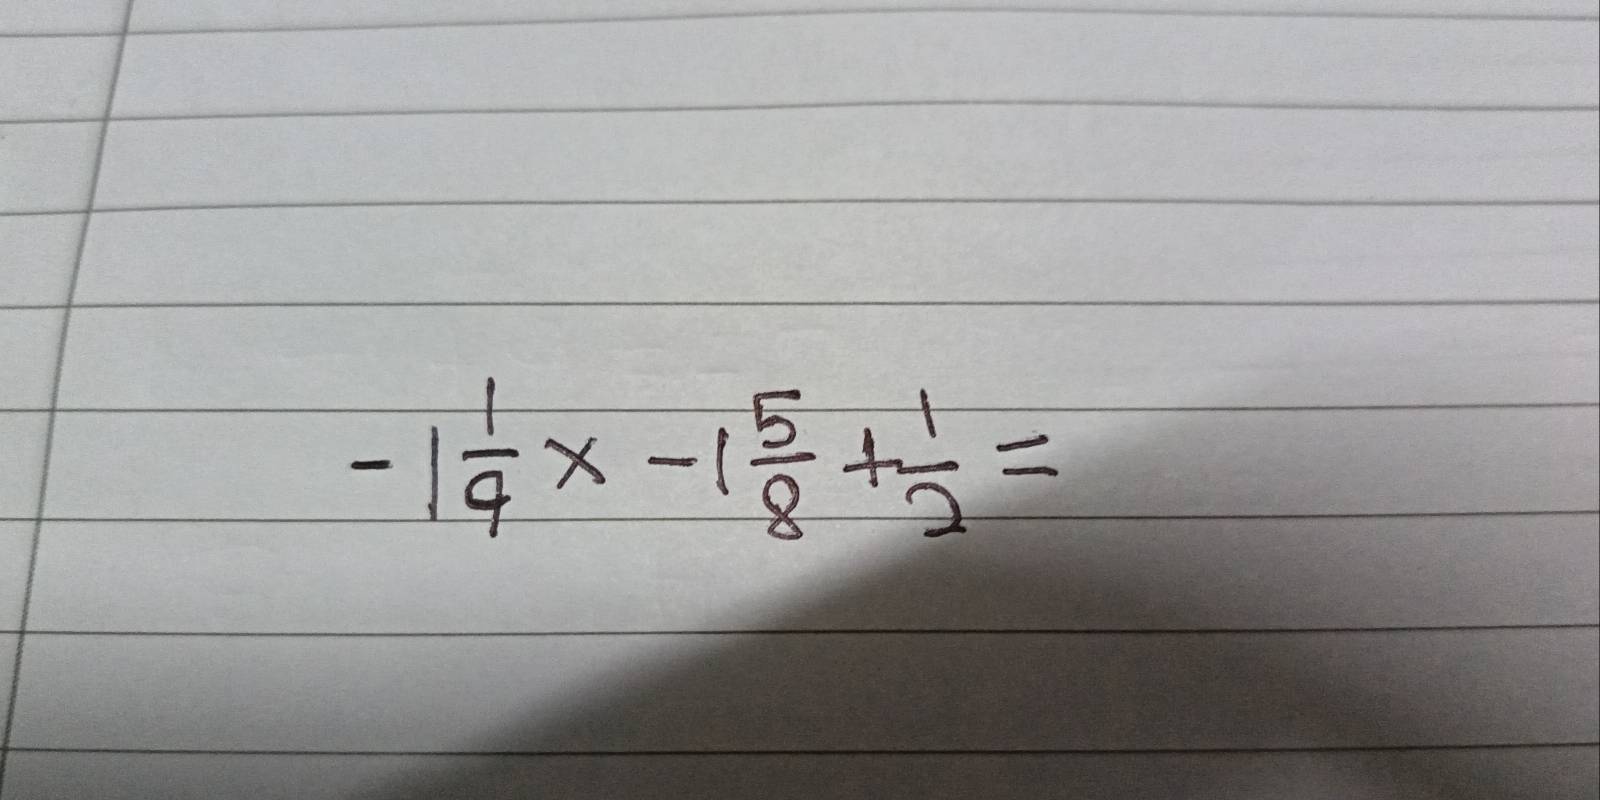 -1 1/9 × -1 5/8 + 1/2 =